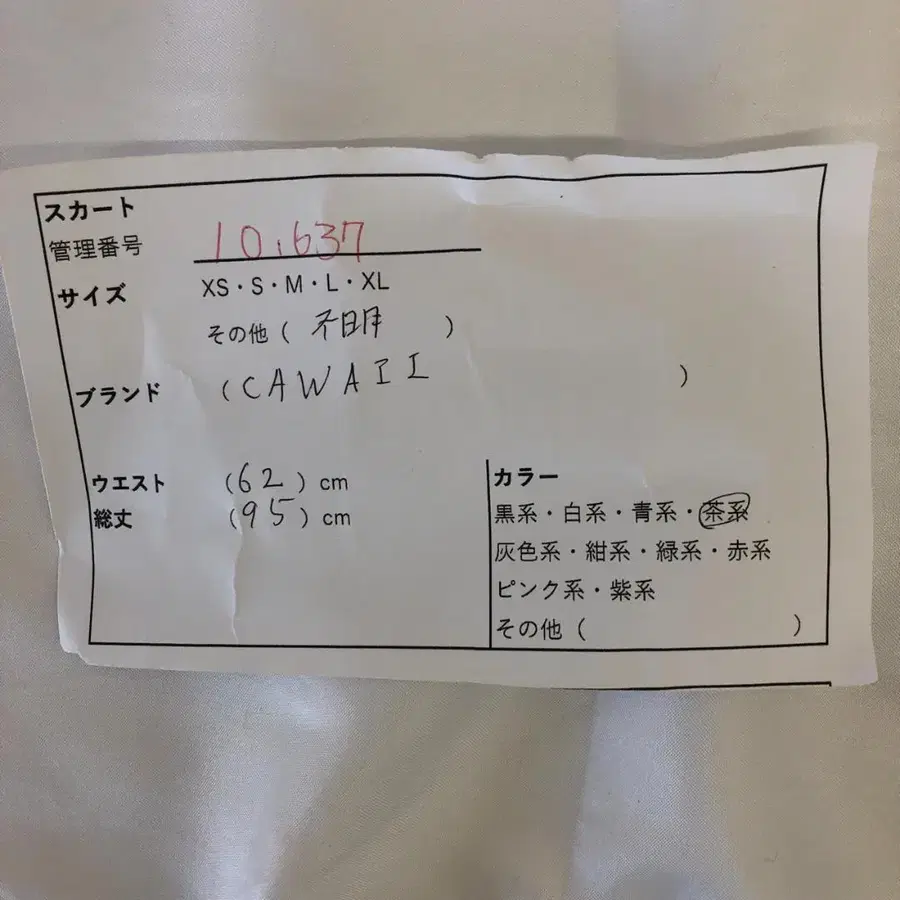 スカート
管理番号 10.637
サイズ XS・S・M・L・XL
その他 ( 不明 )
ブランド ( CAWAII )
ウエスト ( 62 ) cm
総丈 ( 95 ) cm
カラー
黒系・白系・青系・茶系
灰色系・紺系・緑系・赤系
ピンク系・紫系
その他 ( )